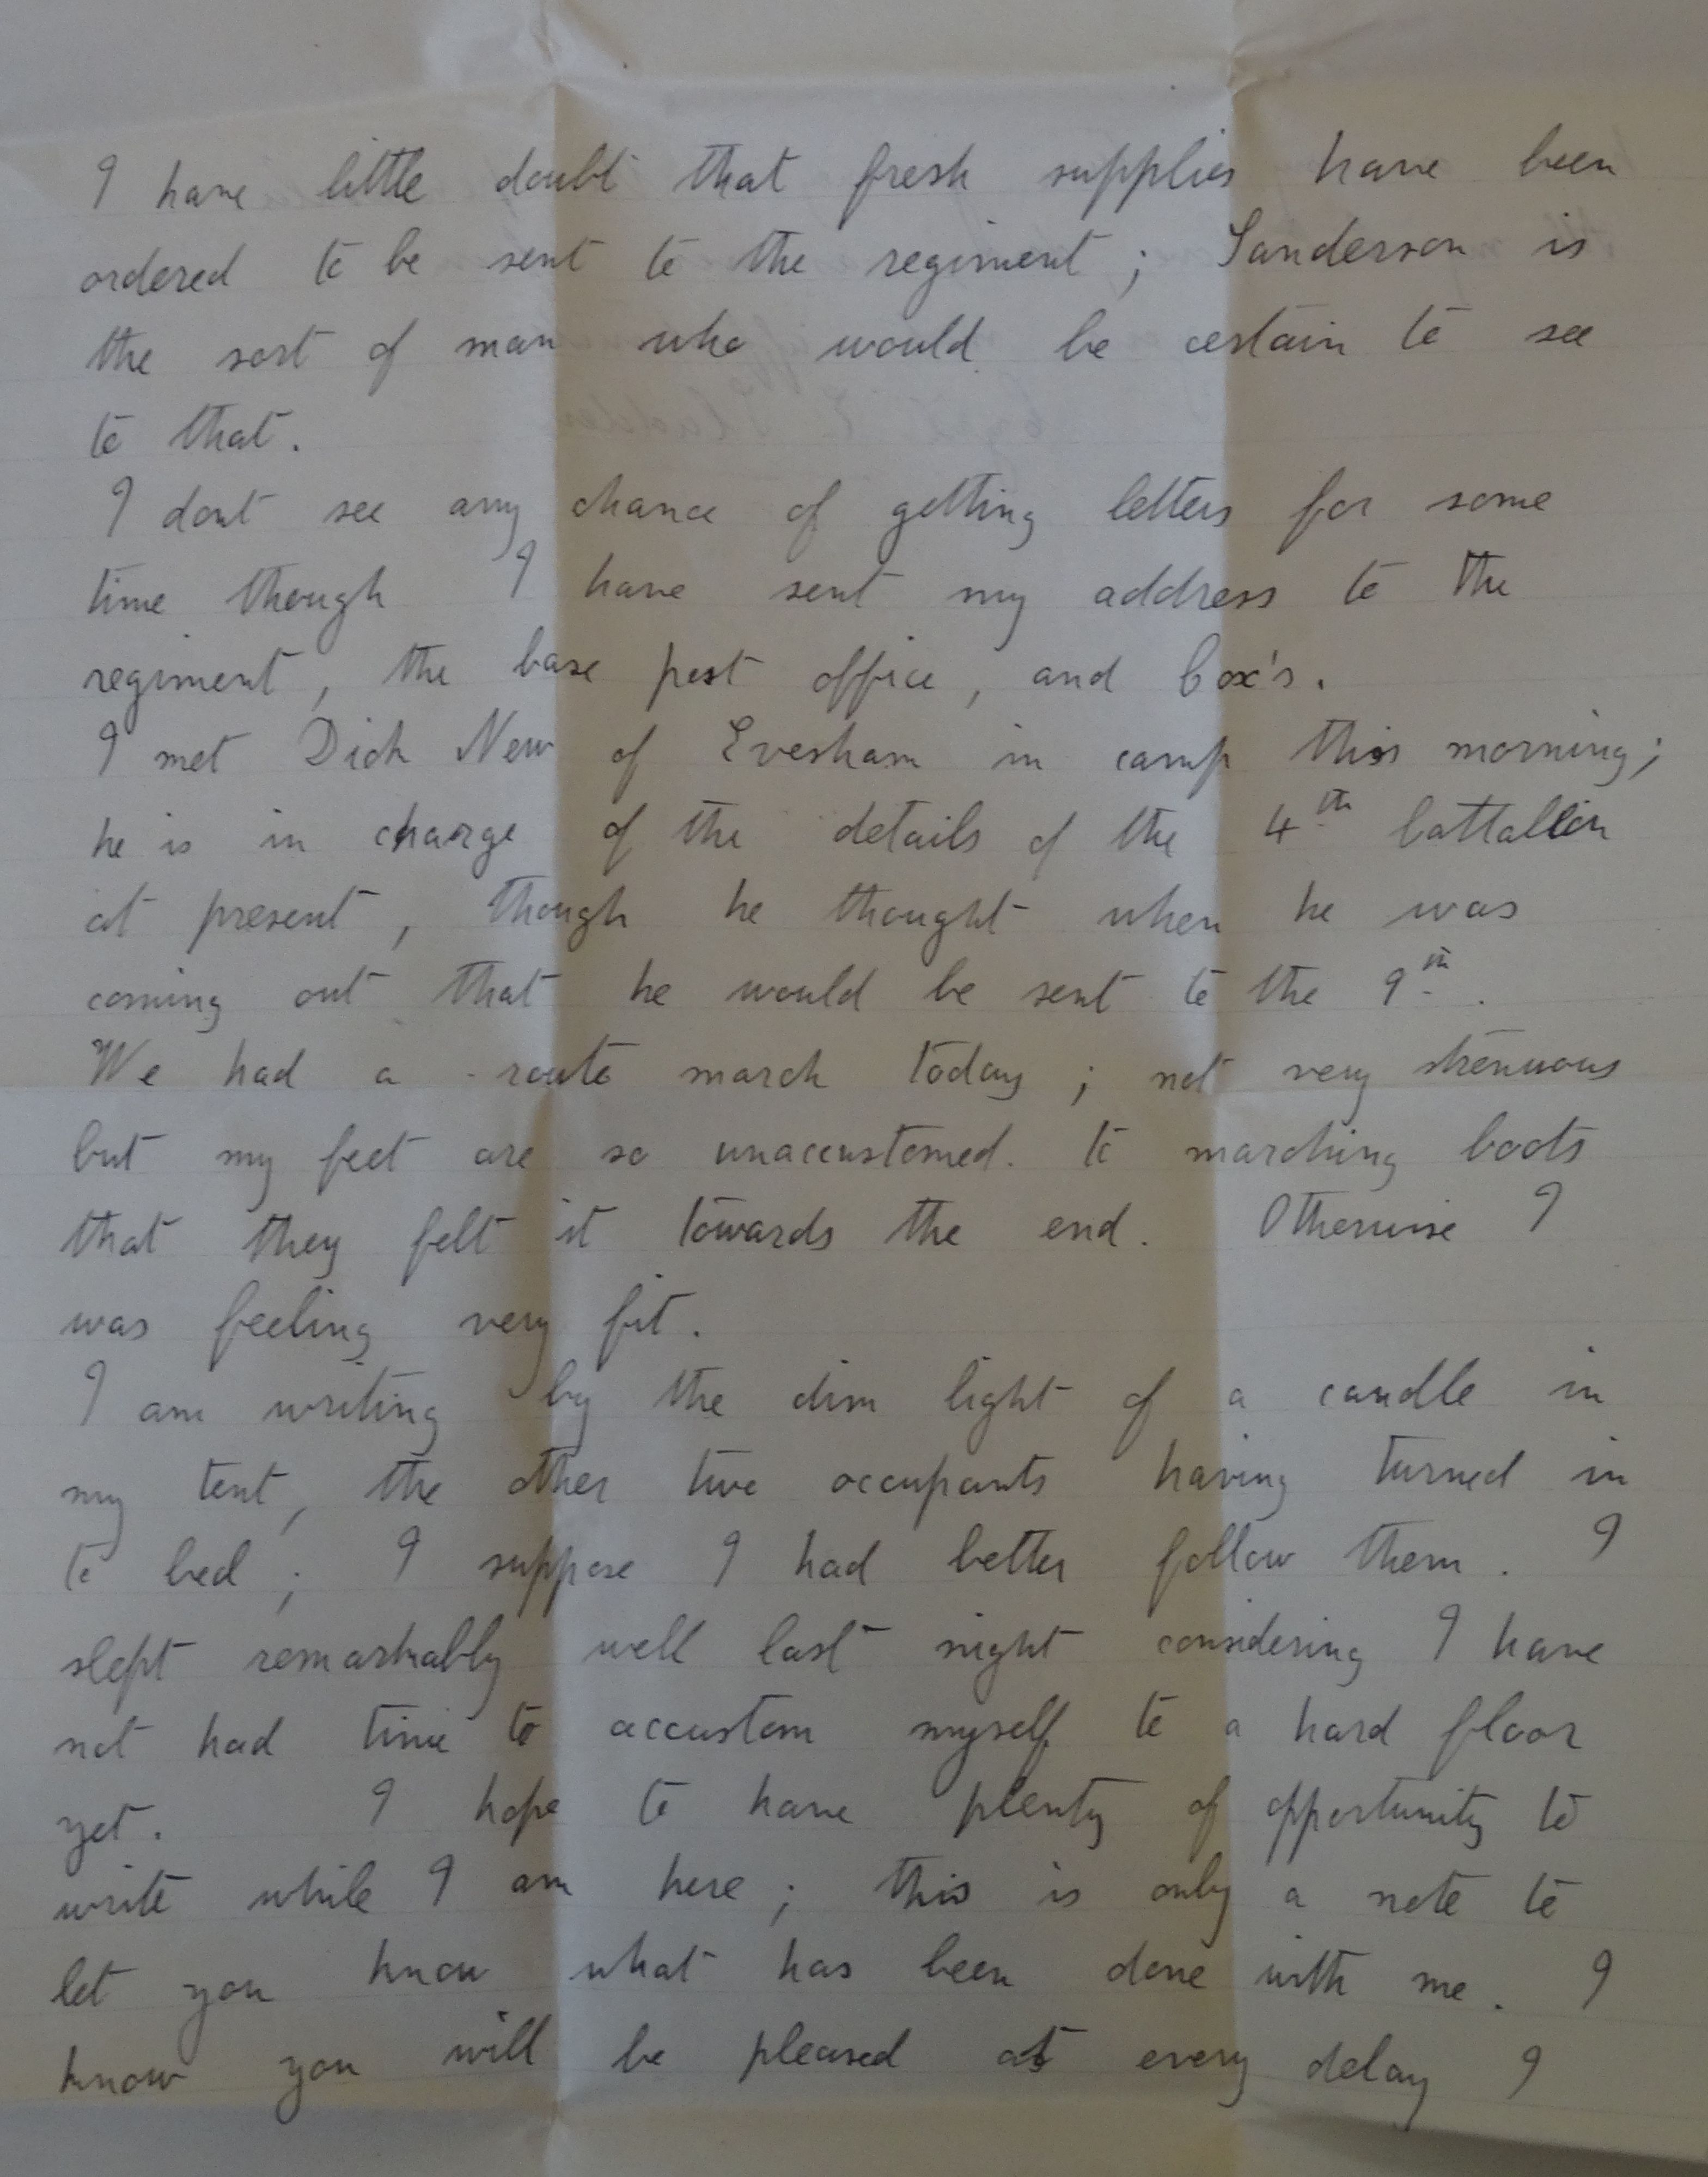 I have little doubt that fresh supplies have been
ordered to be sent to the regiment ; Sanderson is
the sort of man who would be certain to see
to that .
I dont see any chance of getting letters for some
time though I have sent my address to the
regiment , the base post office , and Cox's .
I met Dick New of Evesham in camp this morning ;
he is in charge of the details of the 4th battalion
at present , though he thought when he was
coming out that he would be sent to the 9th .
We had a route march today ; not very strenuous
but my feet are so unaccustomed to marching boots
that they felt it towards the end . Otherwise I
was feeling very fit .
I am writing by the dim light of a candle in
my tent , the other two occupants having turned in
to bed ; I suppose I had better follow them . I
slept remarkably well last night considering I have
not had time to accustom myself to a hard floor
yet . I hope to have plenty of opportunity to
write while I am here ; this is only a note to
let you know what has been done with me . I
know you will be pleased at every delay I